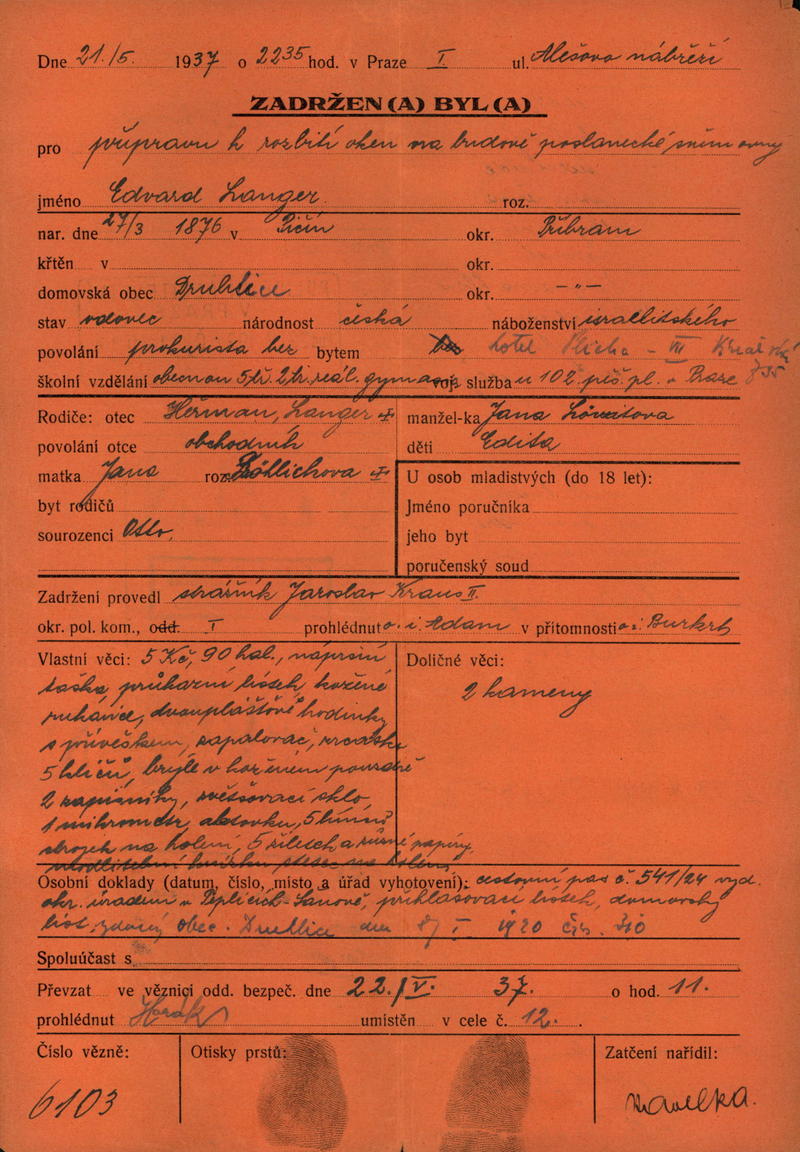 Dne 21./5. 1937 o 2235 hod. v Praze I ul. Alešovo nábřeží
ZADRŽEN (A) BYL (A)
pro přípravu k rozbití oken na budově poslanecké sněmovny
jméno Edvard Langer roz.
nar. dne 27/3 1876 v Pičín okr. Příbram
křtěn v okr.
domovská obec Druhlice okr. –"–
stav vdovec národnost česká náboženství israelitského
povolání prokurista bez bytem hotel Plicha - VII
školní vzdělání obecnou 5 tř. 2 tř. reál. gymnas. voj. služba u 102 pěš. pl. v Praze
Rodiče: otec Heřman Langer manžel-ka Jana
povolání otce obchodník děti Edita
matka Jana roz.
byt rodičů
sourozenci Otto,
U osob mladistvých (do 18 let):
Jméno poručníka
jeho byt
poručenský soud
Zadržení provedl strážník Jaroslav Kraus II.
okr. pol. kom., odd. I prohlédnut o. i. Adam v přítomnosti o. i. Burkrt
Vlastní věci: 5 Kč, 90 hal., náprsní
taška, průkazní lístek, kožené
rukavice, dvouplášťové hodinky
s přívěskem, zapalovač, zrcátko
5 klíčů, brýle v koženém pouzdře
2 zápisníky, zvětšovací sklo,
1 mikrometr, aktovku, 5
strojek na holení, 5 žiletek a různé papíry,
Doličné věci:
2 kameny
Osobní doklady (datum, číslo, místo a úřad vyhotovení): cestovní pas č. 541/24 vyd.
okr. úřadem v Teplicích-Šanově, přihlašovací lístek, domovský
list, vydaný obec. Druhlice dne I 1920 čís.
Spoluúčast s
Převzat ve věznici odd. bezpeč. dne 22./V. 37. o hod. 11.
prohlédnut Horák umístěn v cele č. 12.
Číslo vězně: Otisky prstů: Zatčení nařídil:
6103 Kavelka.